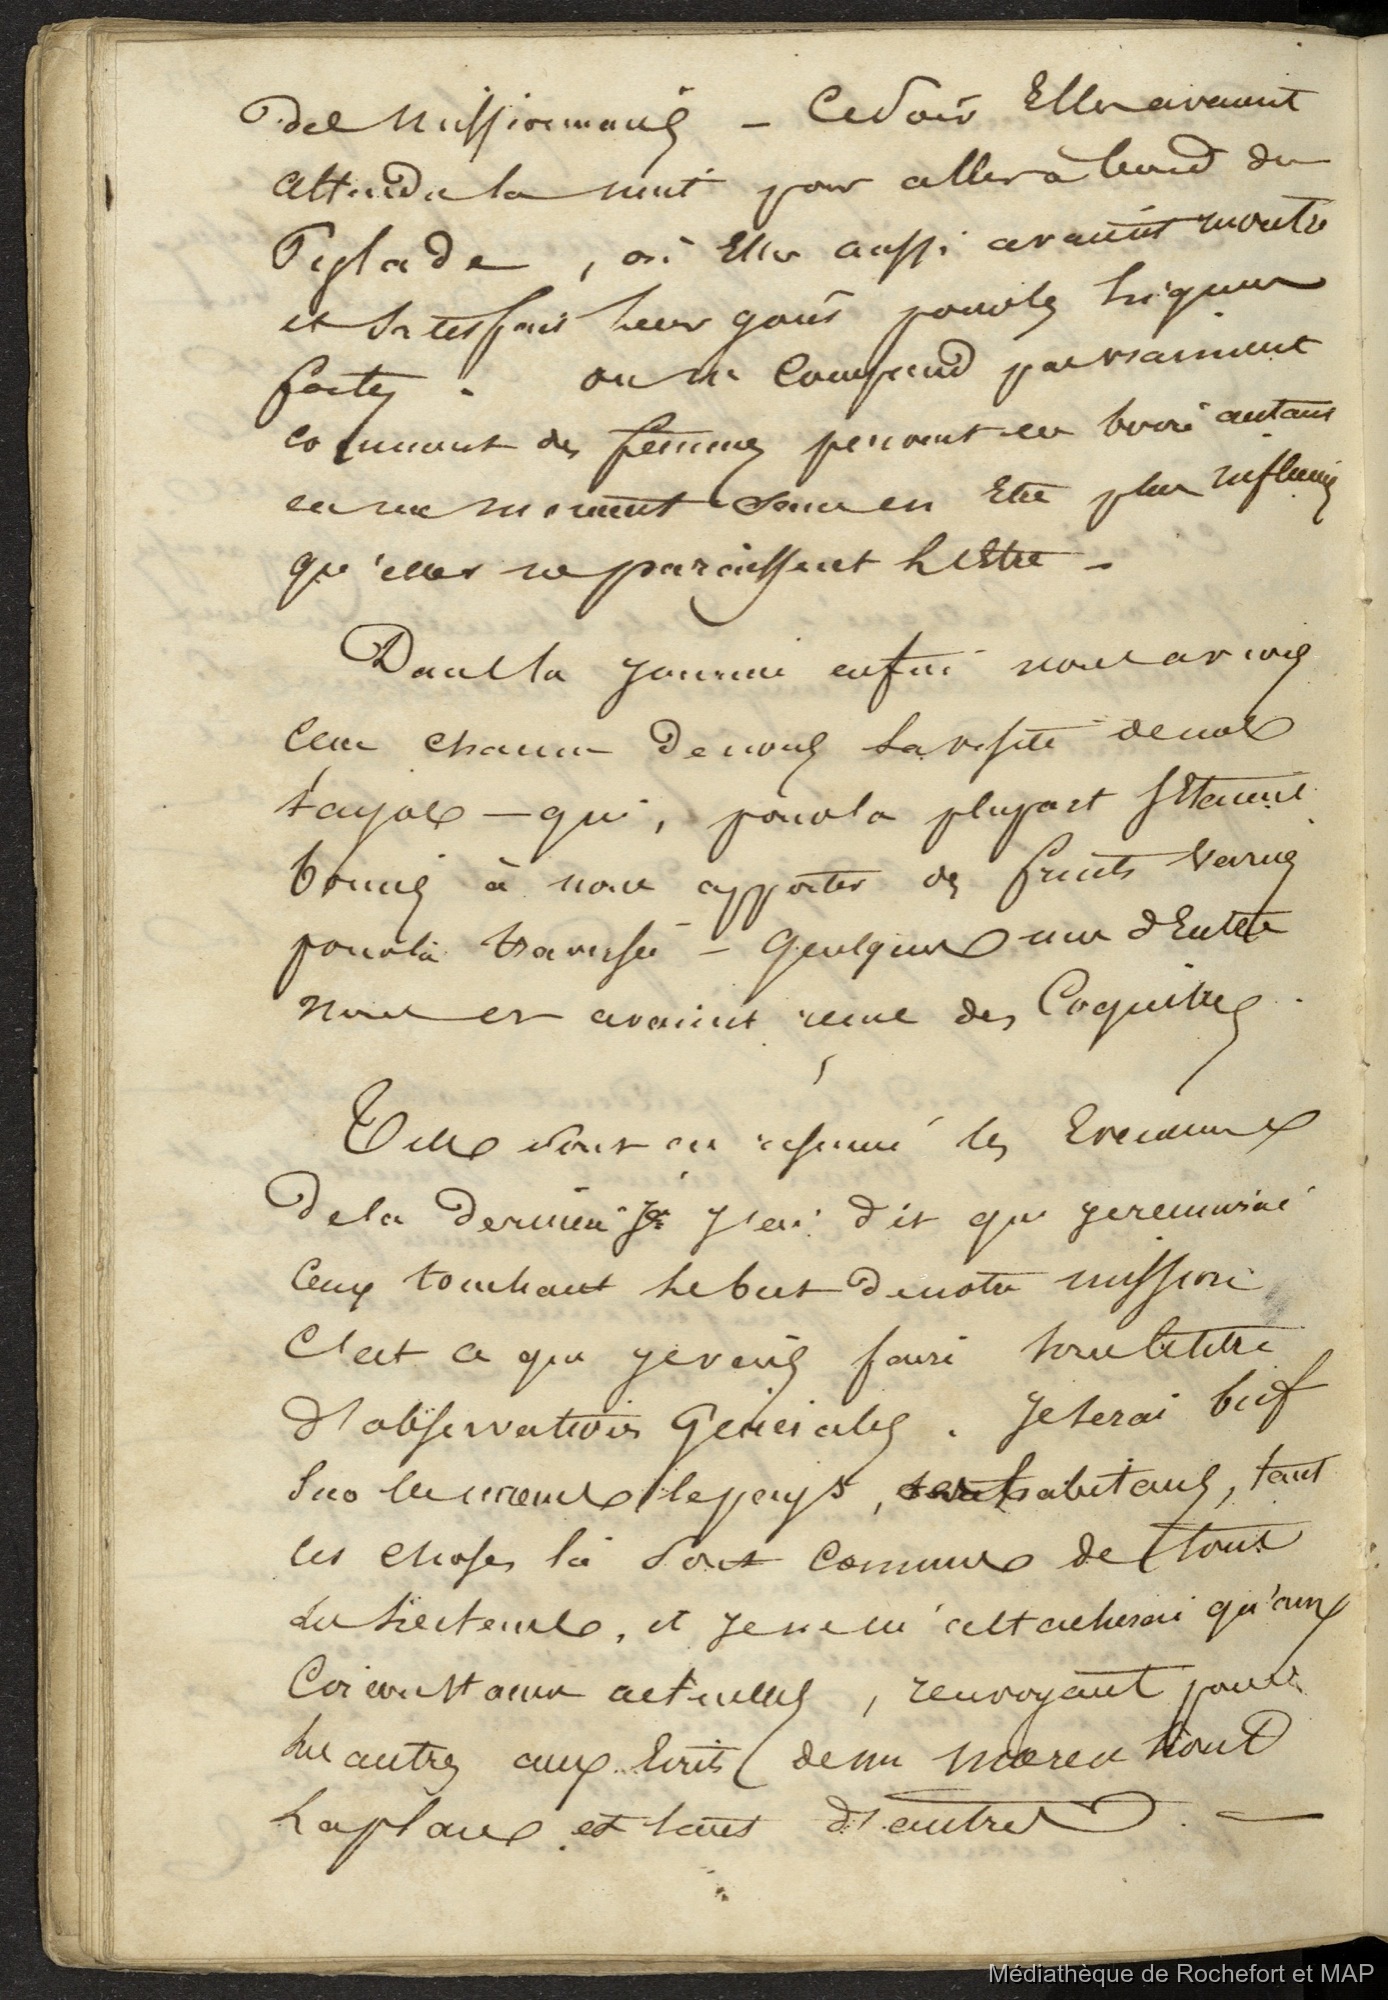 des missionnaires – Ce soir Elles avaient
attendu la nuit pour aller à bord du
Pylade, où Elles aussi avaient montré
et satisfait leur goût pour les liqueurs
fortes. on ne comprend pas vraiment
comment des femmes peuvent en boire autant
en un moment sans en Etre plus
qu'elles ne paraissent l'Etre –
Dans la journée enfin nous avions
eu chacun de nous la visite de nos
tayos – qui, pour la plupart s'étaient
bornés à nous apporter des fruits
pour la traversée – Quelques uns d'Entre
nous en avaient reçu des Coquilles.
Tels sont en résumé les Evenemens
De la Dernière J'ai dit que je
ceux touchant le but De notre mission
C'est ce que je vais faire sous le titre
D'observations Générales. Je serai bref
Sur les mœurs le pays, habitans, tant
ces choses là sont connues de tous
les lecteurs, et je ne m'attacherai qu'aux
Circonstances actuelles, renvoyant pour
les autres aux Ecrits de mr Morenhout
Laplace et tant d'autres. —
Médiathèque de Rochefort et MAP